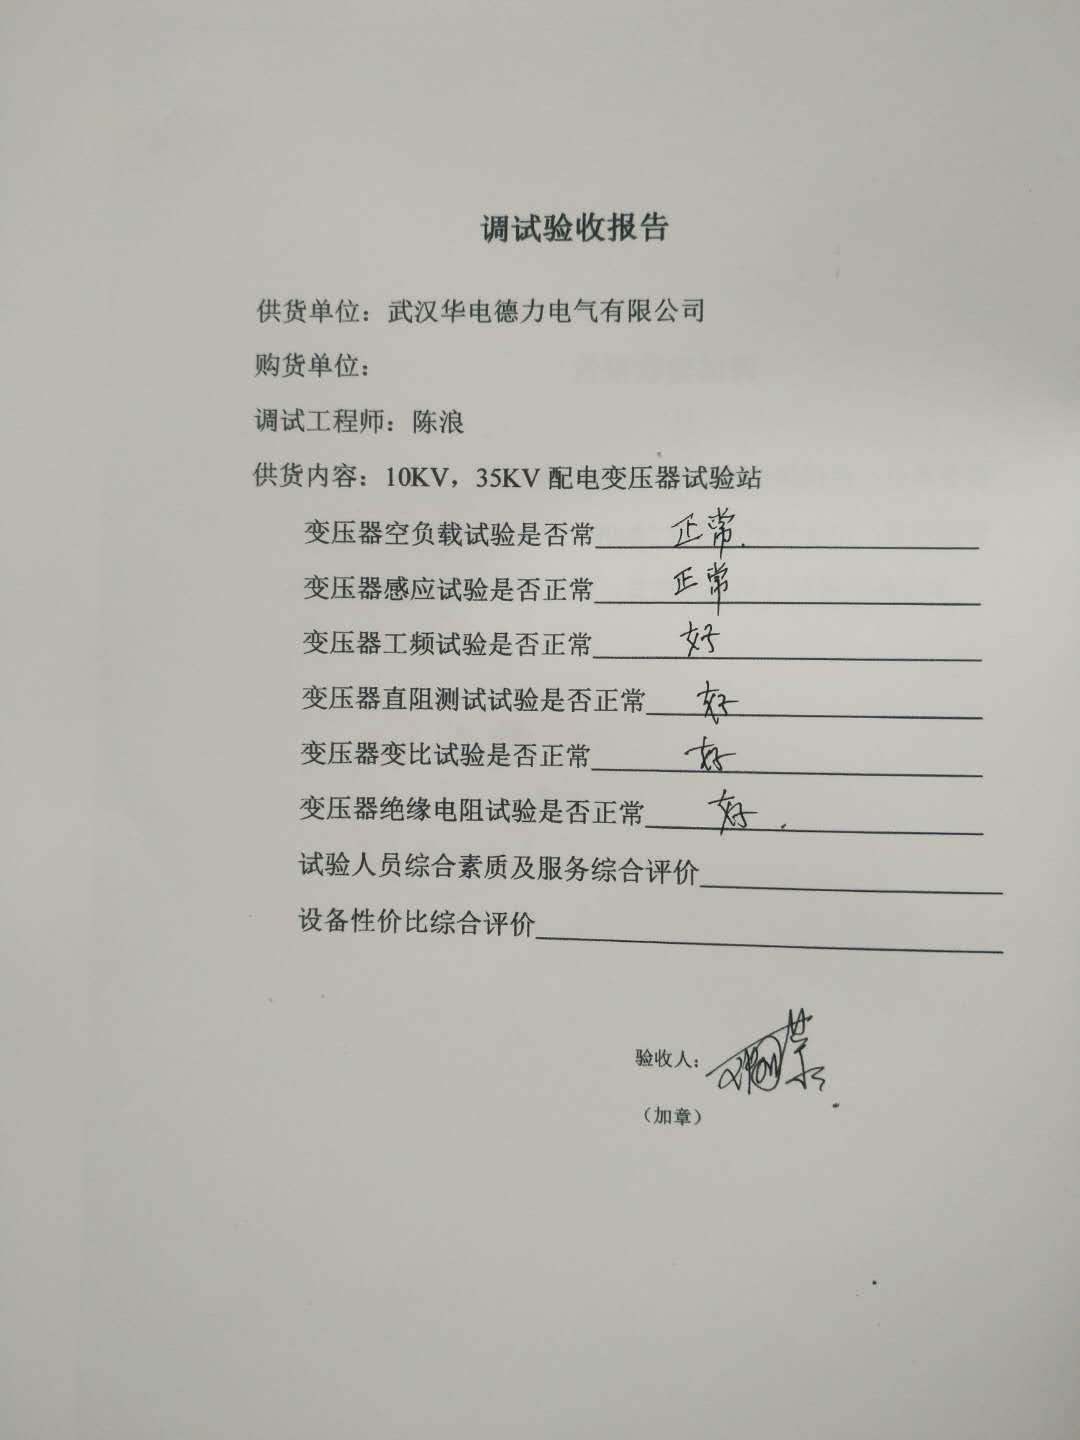 调试验收报告
供货单位：武汉华电德力电气有限公司
购货单位：
调试工程师：陈浪
供货内容：10KV，35KV 配电变压器试验站
变压器空负载试验是否常 正常.
变压器感应试验是否正常 正常
变压器工频试验是否正常 好
变压器直阻测试试验是否正常 好
变压器变比试验是否正常 好
变压器绝缘电阻试验是否正常 好.
试验人员综合素质及服务综合评价
设备性价比综合评价
验收人：
（加章）